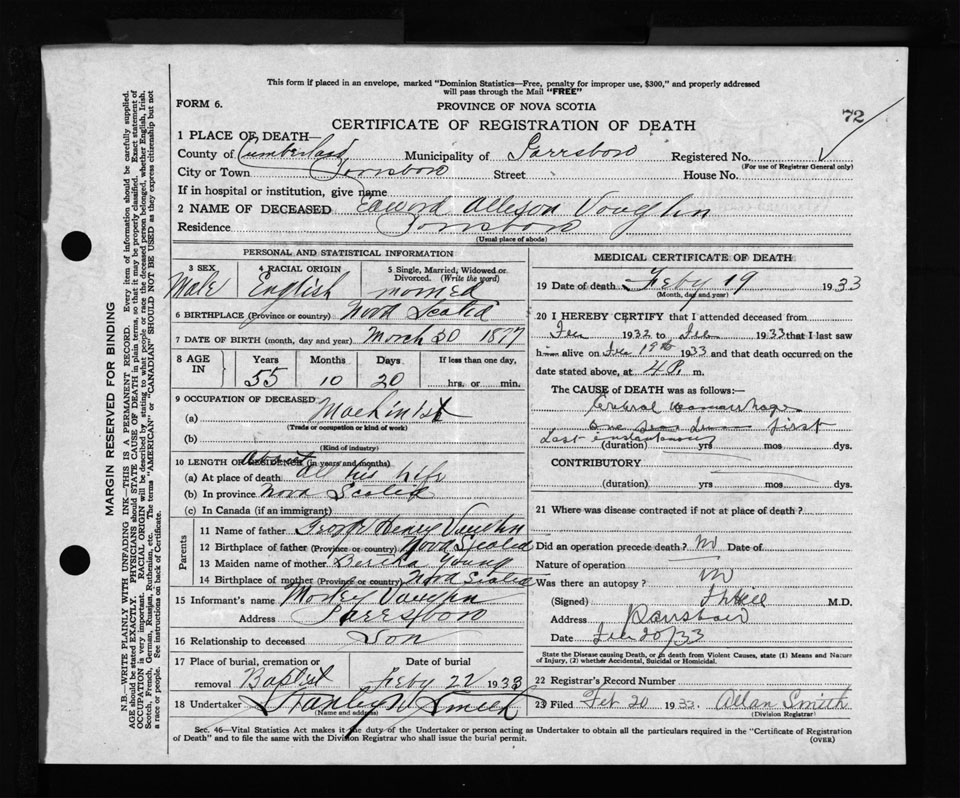 This form if placed in an envelope, marked "Dominion Statistics—Free, penalty for improper use, $300," and properly addressed
will pass through the Mail "FREE"
FORM 6.
PROVINCE OF NOVA SCOTIA
72
CERTIFICATE OF REGISTRATION OF DEATH
1 PLACE OF DEATH—
County of Cumberland Municipality of Parrsboro Registered No.
(For use of Registrar General only)
City or Town Parrsboro Street House No.
If in hospital or institution, give name
2 NAME OF DECEASED Edward Allison Vaughn
Residence Parrsboro
(Usual place of abode)
PERSONAL AND STATISTICAL INFORMATION
3 SEX Male
4 RACIAL ORIGIN English
5 Single, Married, Widowed or Divorced. (Write the word) married
6 BIRTHPLACE (Province or country) Nova Scotia
7 DATE OF BIRTH (month, day and year) March 30 1877
8 AGE IN Years Months Days If less than one day,
55 10 20 hrs. or min.
9 OCCUPATION OF DECEASED
(a) Machinist
(Trade or occupation or kind of work)
(b)
(Kind of industry)
10 LENGTH OF RESIDENCE (in years and months)
(a) At place of death all his life
(b) In province Nova Scotia
(c) In Canada (if an immigrant)
Parents
11 Name of father George Henry Vaughn
12 Birthplace of father (Province or country) Nova Scotia
13 Maiden name of mother Young
14 Birthplace of mother (Province or country) Nova Scotia
15 Informant's name Vaughn
Address Parrsboro
16 Relationship to deceased Son
17 Place of burial, cremation or removal Baptist
Date of burial Feby 22 1933
18 Undertaker Stanley W Smith
(Name and address)
MEDICAL CERTIFICATE OF DEATH
19 Date of death Feby 19 1933
(Month, day and year)
20 I HEREBY CERTIFY that I attended deceased from
1932 to Feb 1933 that I last saw
him alive on Feb 19th 1933 and that death occurred on the
date stated above, at 4 P. m.
The CAUSE of DEATH was as follows:—
Cerebral Haemorrhage
One first
Last instantaneous
(duration) yrs mos dys.
CONTRIBUTORY
(duration) yrs mos dys.
21 Where was disease contracted if not at place of death?
Did an operation precede death? No Date of
Nature of operation
Was there an autopsy? No
(Signed) Hill M.D.
Address Parrsboro
Date Feb 20/33
State the Disease causing Death, or in death from Violent Causes, state (1) Means and Nature
of Injury, (2) whether Accidental, Suicidal or Homicidal.
22 Registrar's Record Number
23 Filed Feb 20 1933. Allan Smith
(Division Registrar)
Sec. 46—Vital Statistics Act makes it the duty of the Undertaker or person acting as Undertaker to obtain all the particulars required in the "Certificate of Registration
of Death" and to file the same with the Division Registrar who shall issue the burial permit.
(OVER)
MARGIN RESERVED FOR BINDING
N.B.—WRITE PLAINLY WITH UNFADING INK—THIS IS A PERMANENT RECORD. Every item of information should be carefully supplied.
AGE should be stated EXACTLY. PHYSICIANS should STATE CAUSE OF DEATH in plain terms, so that it may be properly classified. Exact statement of
OCCUPATION is very important. RACIAL ORIGIN will be described by stating to what people or race the deceased person belonged, whether English, Irish,
Scotch, French, German, Russian, Ruthenian, etc. The terms "AMERICAN" or "CANADIAN" SHOULD NOT BE USED as they express citizenship but not
a race or people. See instructions on back of Certificate.